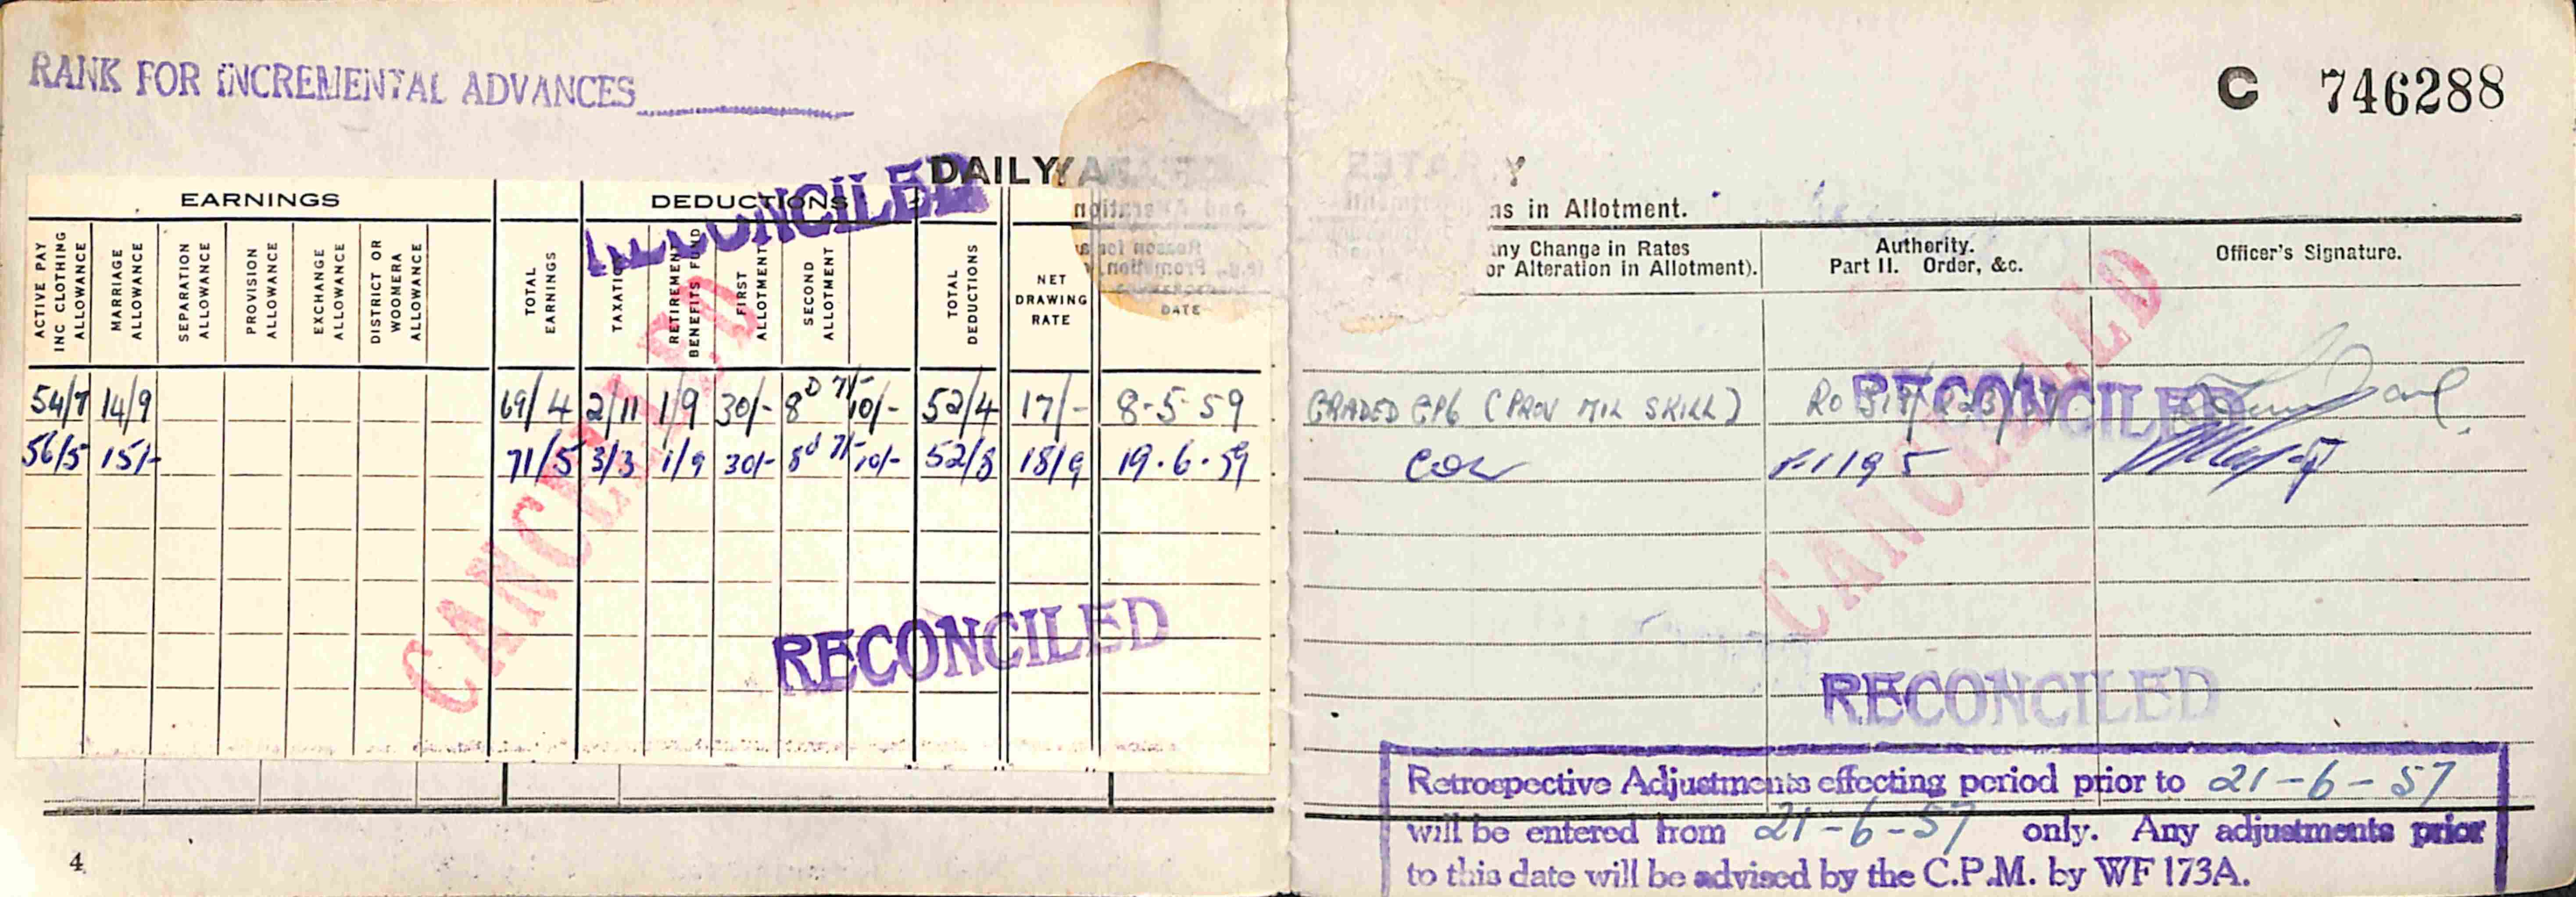 RANK FOR INCREMENTAL ADVANCES
C 746288
DAILY
RECONCILED
EARNINGS DEDUCTIONS
ns in Allotment.
ACTIVE PAY INC CLOTHING ALLOWANCE
MARRIAGE ALLOWANCE
SEPARATION ALLOWANCE
PROVISION ALLOWANCE
EXCHANGE ALLOWANCE
DISTRICT OR WOOMERA ALLOWANCE
TOTAL EARNINGS
TAXATION
RETIREMENT BENEFITS FUND
FIRST ALLOTMENT
SECOND ALLOTMENT
TOTAL DEDUCTIONS
NET DRAWING RATE
DATE
ny Change in Rates
or Alteration in Allotment).
Authority.
Part II. Order, &c.
Officer's Signature.
54/7 14/9 69/4 2/11 1/9 30/- 8D 7/- 10/- 52/4 17/- 8-5-59 GRADED GP6 (PROV MIL SKILL) RO
RECONCILED
56/5 15/- 71/5 3/3 1/9 30/- 8d 7/- 10/- 52/8 18/9 19.6.59 COL
CANCELLED
CANCELLED
RECONCILED
RECONCILED
Retrospective Adjustments effecting period prior to 21-6-57
will be entered from 21-6-57 only. Any adjustments prior
to this date will be advised by the C.P.M. by WF 173A.
4